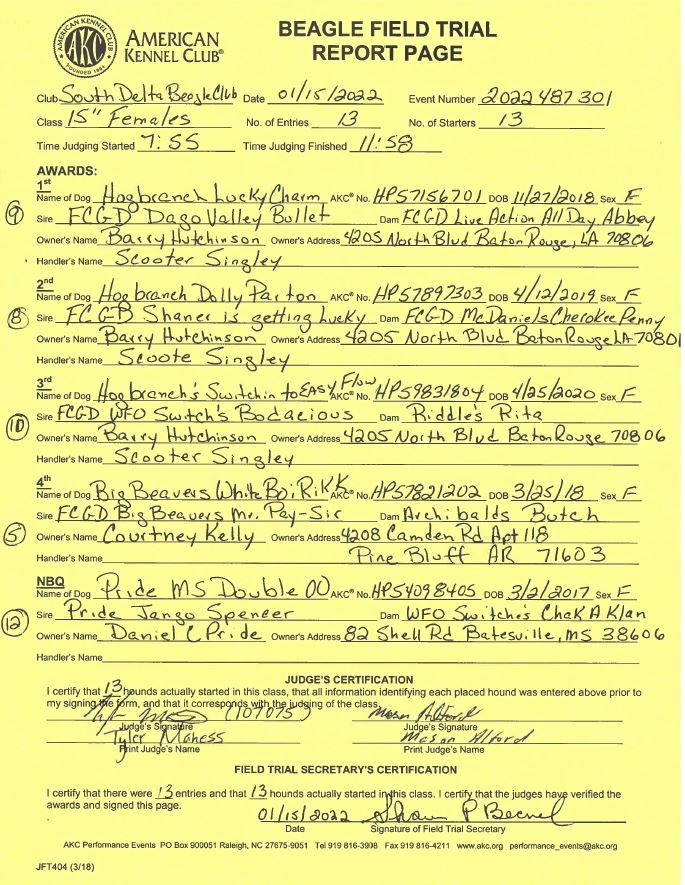 AMERICAN KENNEL CLUB
AKC
FOUNDED 1884
AMERICAN
KENNEL CLUB®
BEAGLE FIELD TRIAL
REPORT PAGE
Club South Delta Beagle Club Date 01/15/2022 Event Number 2022487301
Class 15" Females No. of Entries 13 No. of Starters 13
Time Judging Started 7:55 Time Judging Finished 11:58
AWARDS:
1st
Name of Dog Hogbranch Lucky Charm AKC® No. HP57156701 DOB 11/27/2018 Sex F
9 Sire FCGD Dago Valley Bullet Dam FCGD Live Action All Day Abbey
Owner's Name Barry Hutchinson Owner's Address 4205 North Blvd Baton Rouge, LA 70806
Handler's Name Scooter Singley
2nd
Name of Dog Hogbranch Dolly Parton AKC® No. HP57897303 DOB 4/12/2019 Sex F
8 Sire FCGD Shaner is getting Lucky Dam FCGD McDaniels Cherokee Penny
Owner's Name Barry Hutchinson Owner's Address 4205 North Blvd Baton Rouge LA 7080
Handler's Name Scoote Singley
3rd
Name of Dog Hogbranch's Switchin to EASY Flow AKC® No. HP59831804 DOB 4/25/2020 Sex F
10 Sire FCGD WFO Switch's Bodacious Dam Riddle's Rita
Owner's Name Barry Hutchinson Owner's Address 4205 North Blvd Baton Rouge 70806
Handler's Name Scooter Singley
4th
Name of Dog Big Beavers White Boi RiKK AKC® No. HP57821202 DOB 3/25/18 Sex F
5 Sire FCGD Big Beavers Mr. Pay-Sir Dam Archibalds Butch
Owner's Name Courtney Kelly Owner's Address 4208 Camden Rd Apt 118
Handler's Name Pine Bluff AR 71603
NBQ
Name of Dog Pride MS Double 00 AKC® No. HP54098405 DOB 3/2/2017 Sex F
12 Sire Pride Jango Spencer Dam WFO Switche's Chak A Klan
Owner's Name Daniel C Pride Owner's Address 82 Shell Rd Batesville, MS 38606
Handler's Name
JUDGE'S CERTIFICATION
I certify that 13 hounds actually started in this class, that all information identifying each placed hound was entered above prior to
my signing the form, and that it corresponds with the judging of the class.
(107075) Mason Alford
Judge's Signature Judge's Signature
Tyler Mahess Mason Alford
Print Judge's Name Print Judge's Name
FIELD TRIAL SECRETARY'S CERTIFICATION
I certify that there were 13 entries and that 13 hounds actually started in this class. I certify that the judges have verified the
awards and signed this page.
01/15/2022 Shawn P Becnel
Date Signature of Field Trial Secretary
AKC Performance Events PO Box 900051 Raleigh, NC 27675-9051 Tel 919 816-3908 Fax 919 816-4211 www.akc.org performance_events@akc.org
JFT404 (3/18)